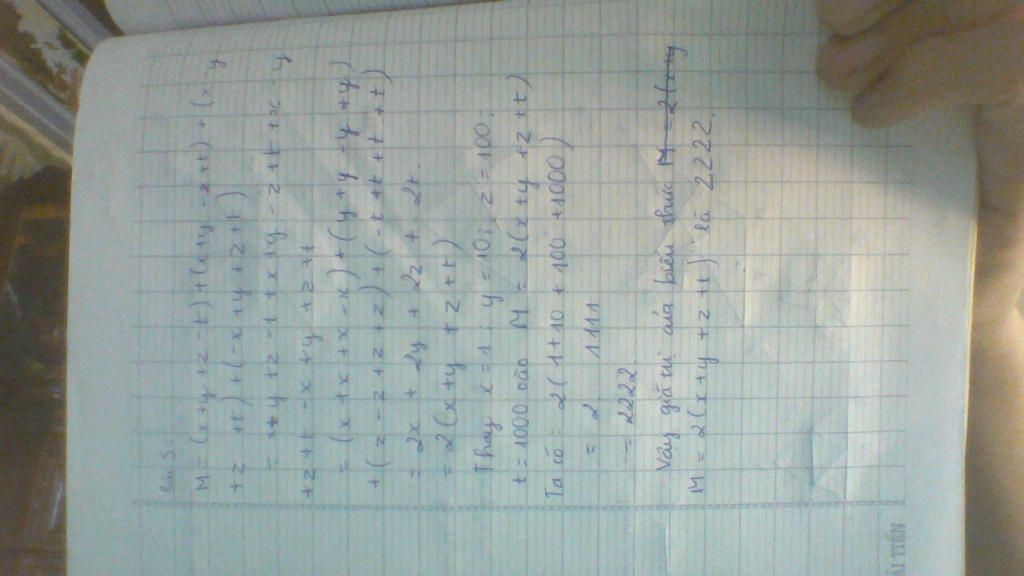 Bài 5.
M = (x+y+z-t)+(x+y-z+t)+(x-y
+z+t)+(-x+y+z+t)
= x+y+z-t+x+y-z+t+x-y
+z+t-x+y+z+t
= (x+x+x-x)+(y+y-y+y)
+(z-z+z+z)+(-t+t+t+t)
= 2x + 2y + 2z + 2t.
= 2(x+y+z+t)
Thay x = 1; y = 10; z = 100;
t = 1000 vào M = 2(x+y+z+t)
Ta có: 2(1+10+100+1000)
= 2. 1111
= 2222.
Vậy giá trị của biểu thức M = 2(x+y
M = 2(x+y+z+t) là 2222.
ẢI TIẾN